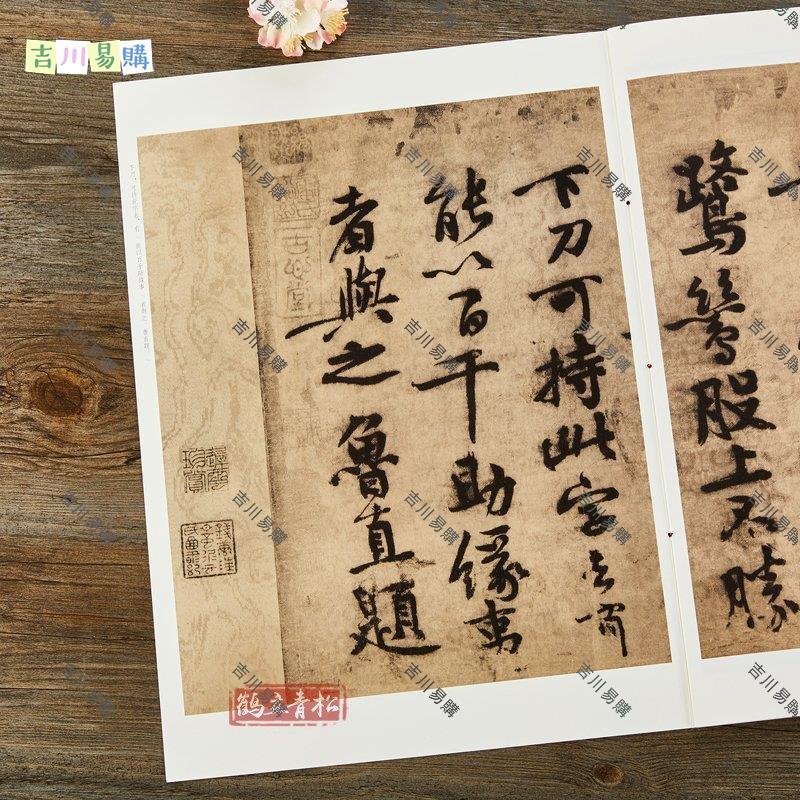 吉川易購
鷺鷥股上不勝
下刀可持此字去有
能以百千助緣事
者與之魯直題
鶴立青松